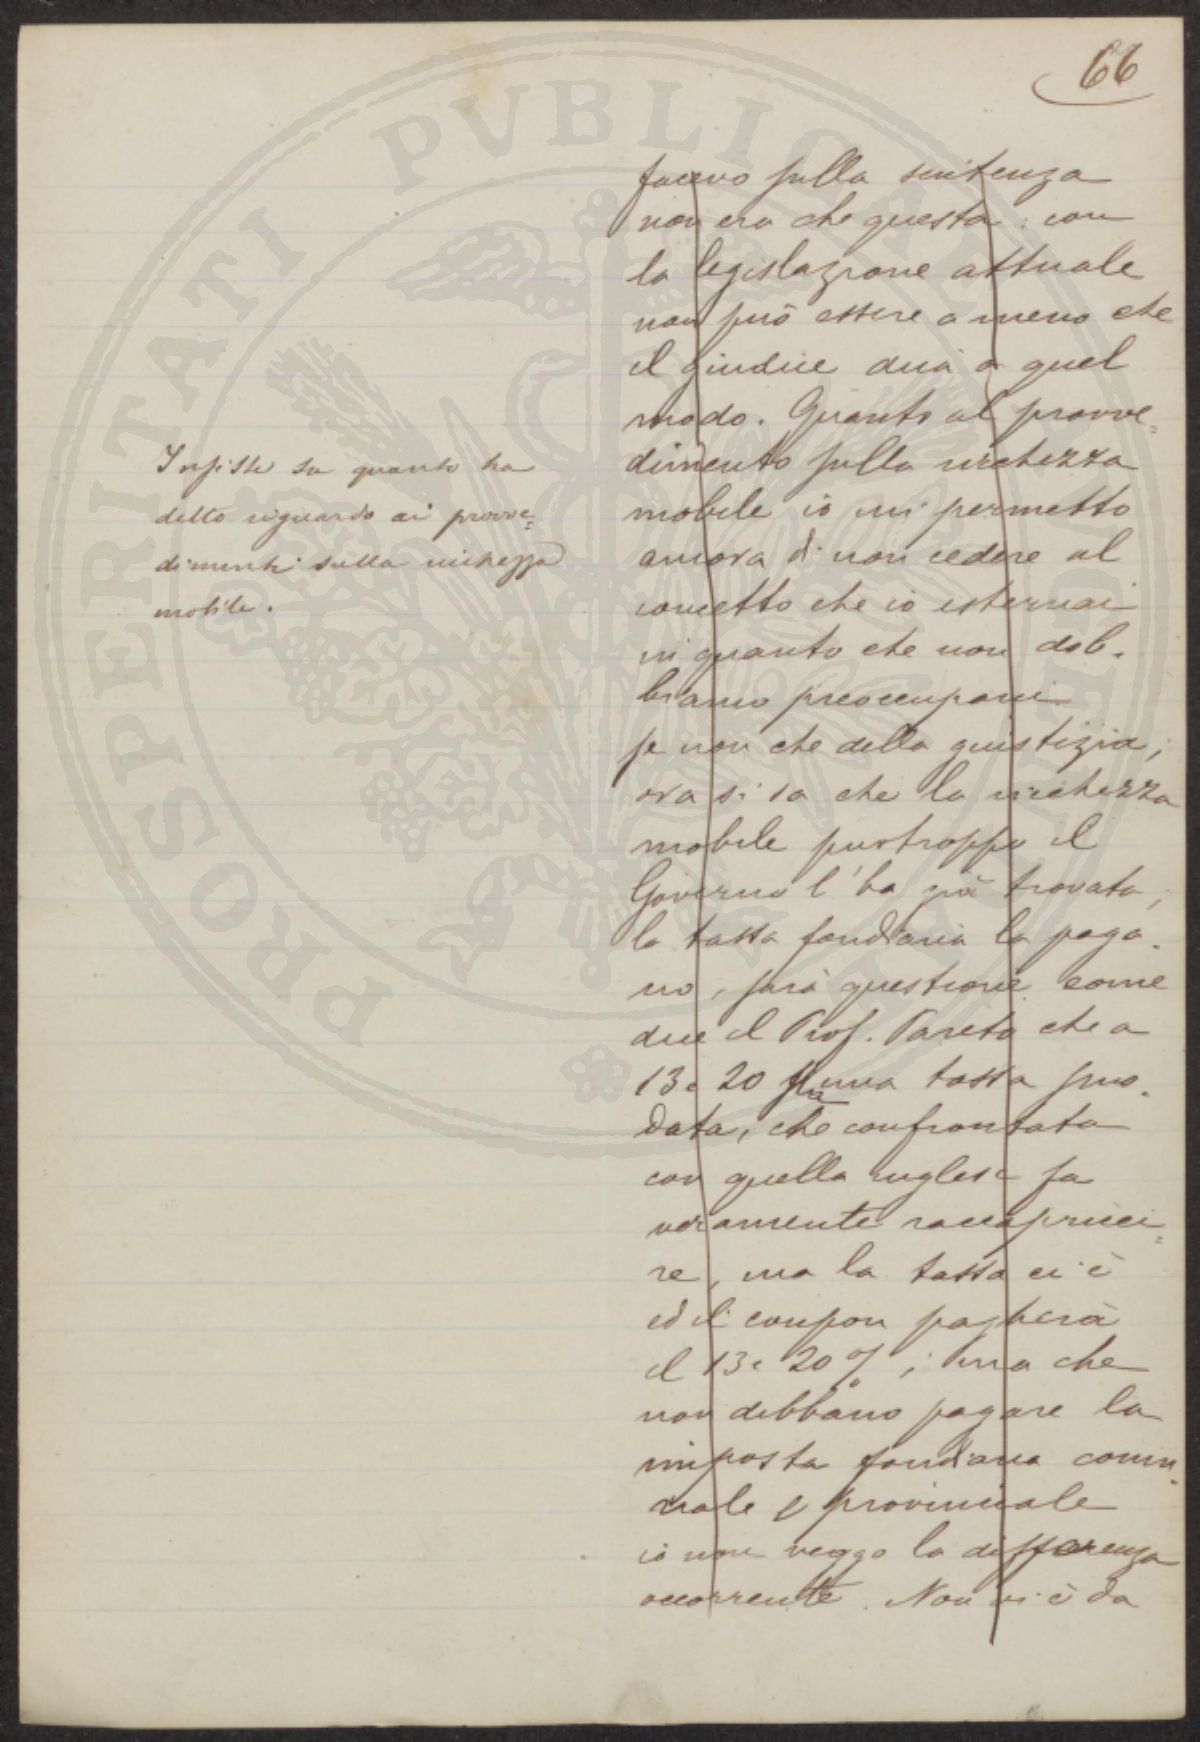 66
facevo sulla sentenza
non era che questa: con
la legislazione attuale
non può essere a meno che
il giudice dica a quel
modo. Quanto al provve=
dimento sulla ricchezza
mobile io mi permetto
ancora di non cedere al
concetto che io esternai
in quanto che non dob-
biamo preoccuparci
se non che della giustizia;
ora si sa che la ricchezza
mobile purtroppo il
Governo l'ha già trovata,
la tassa fondiaria la paga-
no, sarà questione come
dice il Prof. Pareto che a
13.20 sia una tassa spro-
data, che confrontata
con quella inglese fa
veramente raccapricci=
re, ma la tassa ci è
ed il coupon pagherà
il 13.20 %; ma che
non debbano pagare la
imposta fondiaria comu-
nale e provinciale
io non veggo la differenza
occorrente. Non vi è da
Insiste su quanto ha
detto riguardo ai provve=
dimenti sulla ricchezza
mobile.
PROSPERITATI PVBLICAE